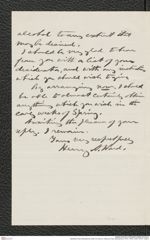 alcohol to any extent it
may be desired.
I should be very glad to hear
from you with a list of your
desiderata, and with any
which you should wish
By arranging now, I should
be able to almost certainly obtain
anything which you wish in the
early weeks of Spring.
Awaiting the favor of your
reply, I remain.
Yours very respectfully
Henry